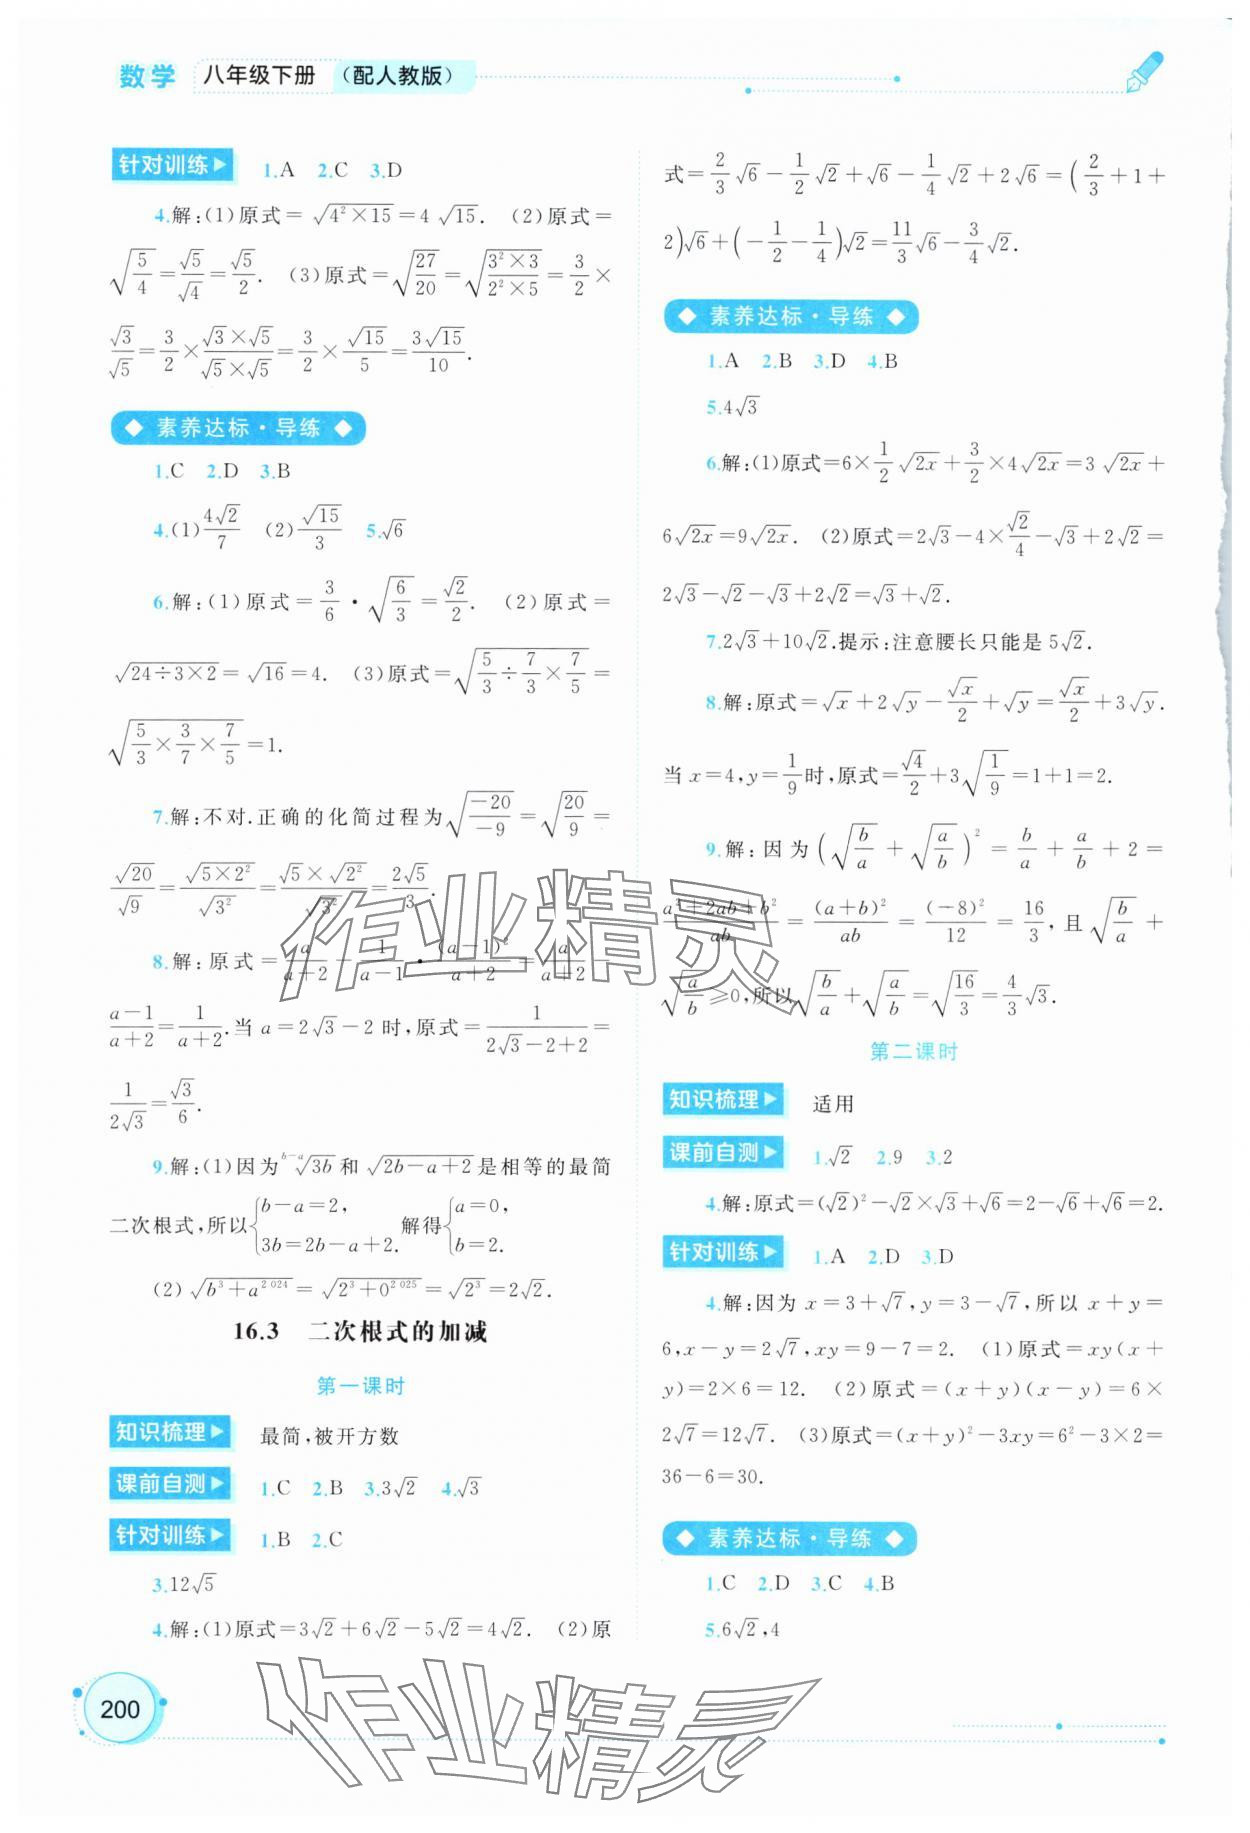 数学 八年级下册 (配人教版)
针对训练 1.A 2.C 3.D
4.解:(1)原式=√(4²×15)=4√15. (2)原式=
√(5/4)=√5/√4=√5/2. (3)原式=√(27/20)=√((3²×3)/(2²×5))=3/2×
√3/√5=3/2×(√3×√5)/(√5×√5)=3/2×√15/5=3√15/10.
◆ 素养达标·导练 ◆
1.C 2.D 3.B
4.(1)4√2/7 (2)√15/3 5.√6
6.解:(1)原式=3/6·√(6/3)=√2/2. (2)原式=
√(24÷3×2)=√16=4. (3)原式=√(5/3÷7/3×7/5)=
√(5/3×3/7×7/5)=1.
7.解:不对.正确的化简过程为√(-20/-9)=√(20/9)=
√20/√9=√(5×2²)/√3²=(√5×√2²)/√3²=2√5/3.
8.解:原式=a/(a+2)-1/(a-1)·(a-1)²/(a+2)=a/(a+2)-
(a-1)/(a+2)=1/(a+2).当a=2√3-2时,原式=1/(2√3-2+2)=
1/(2√3)=√3/6.
9.解:(1)因为 ᵇ⁻ᵃ√(3b)和√(2b-a+2)是相等的最简
二次根式,所以{b-a=2, 3b=2b-a+2. 解得{a=0, b=2.
(2)√(b³+a^2 024)=√(2³+0^2 025)=√2³=2√2.
16.3 二次根式的加减
第一课时
知识梳理 最简,被开方数
课前自测 1.C 2.B 3.3√2 4.√3
针对训练 1.B 2.C
3.12√5
4.解:(1)原式=3√2+6√2-5√2=4√2. (2)原
式=2/3√6-1/2√2+√6-1/4√2+2√6=(2/3+1+
2)√6+(-1/2-1/4)√2=11/3√6-3/4√2.
◆ 素养达标·导练 ◆
1.A 2.B 3.D 4.B
5.4√3
6.解:(1)原式=6×1/2√(2x)+3/2×4√(2x)=3√(2x)+
6√(2x)=9√(2x). (2)原式=2√3-4×√2/4-√3+2√2=
2√3-√2-√3+2√2=√3+√2.
7.2√3+10√2.提示:注意腰长只能是5√2.
8.解:原式=√x+2√y-√x/2+√y=√x/2+3√y.
当x=4,y=1/9时,原式=√4/2+3√(1/9)=1+1=2.
9.解:因为(√(b/a)+√(a/b))²=b/a+a/b+2=
(a²+2ab+b²)/ab=(a+b)²/ab=(-8)²/12=16/3,且√(b/a)+
√(a/b)≥0,所以√(b/a)+√(a/b)=√(16/3)=4/3√3.
第二课时
知识梳理 适用
课前自测 1.√2 2.9 3.2
4.解:原式=(√2)²-√2×√3+√6=2-√6+√6=2.
针对训练 1.A 2.D 3.D
4.解:因为x=3+√7,y=3-√7,所以x+y=
6,x-y=2√7,xy=9-7=2. (1)原式=xy(x+
y)=2×6=12. (2)原式=(x+y)(x-y)=6×
2√7=12√7. (3)原式=(x+y)²-3xy=6²-3×2=
36-6=30.
◆ 素养达标·导练 ◆
1.C 2.D 3.C 4.B
5.6√2,4
200
作业精灵
作业精灵